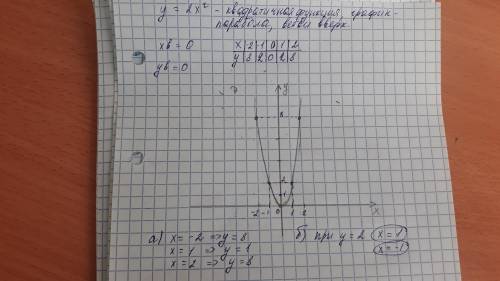 y = 2x² - квадратичная функция, график -
парабола, ветви вверх.
xв = 0
yв = 0
x 2 -1 0 1 2
y 8 2 0 2 8
y
8
2
1
-2 -1 0 1 2
x
а) x = -2 ⇒ y = 8
x = 1 ⇒ y = 1
x = 2 ⇒ y = 8
б) при y = 2 x = 1
x = -1